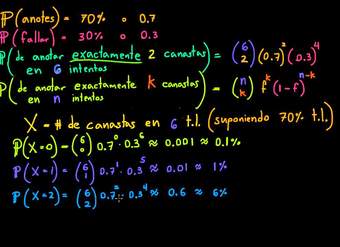 P(anotes) = 70% o 0.7
P(fallar) = 30% o 0.3
P(de anotar exactamente 2 canastas en 6 intentos) = (6 2) (0.7)² (0.3)⁴
P(de anotar exactamente k canastas en n intentos) = (n k) f^k (1-f)^(n-k)
X = # de canastas en 6 t.l. (suponiendo 70% t.l.)
P(X=0) = (6 0) 0.7⁰ · 0.3⁶ ≈ 0.001 ≈ 0.1%
P(X=1) = (6 1) 0.7¹ · 0.3⁵ ≈ 0.01 ≈ 1%
P(X=2) = (6 2) 0.7² · 0.3⁴ ≈ 0.6 ≈ 6%